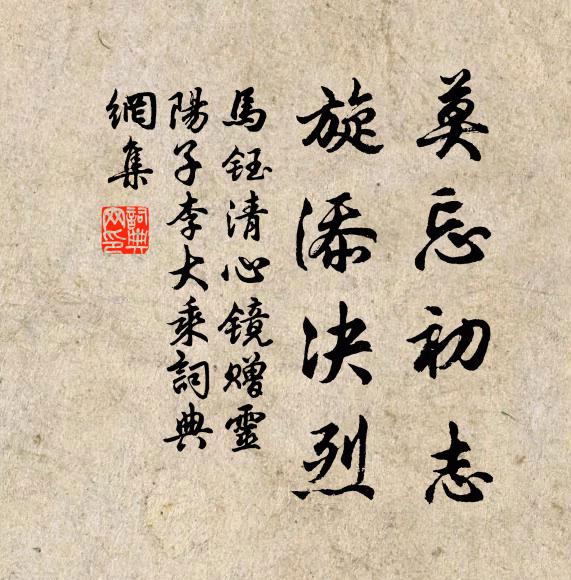 莫忘初志
旋添决烈
馬鈺清心镜赠靈
陽子李大乘詞典
網集
詞典網印